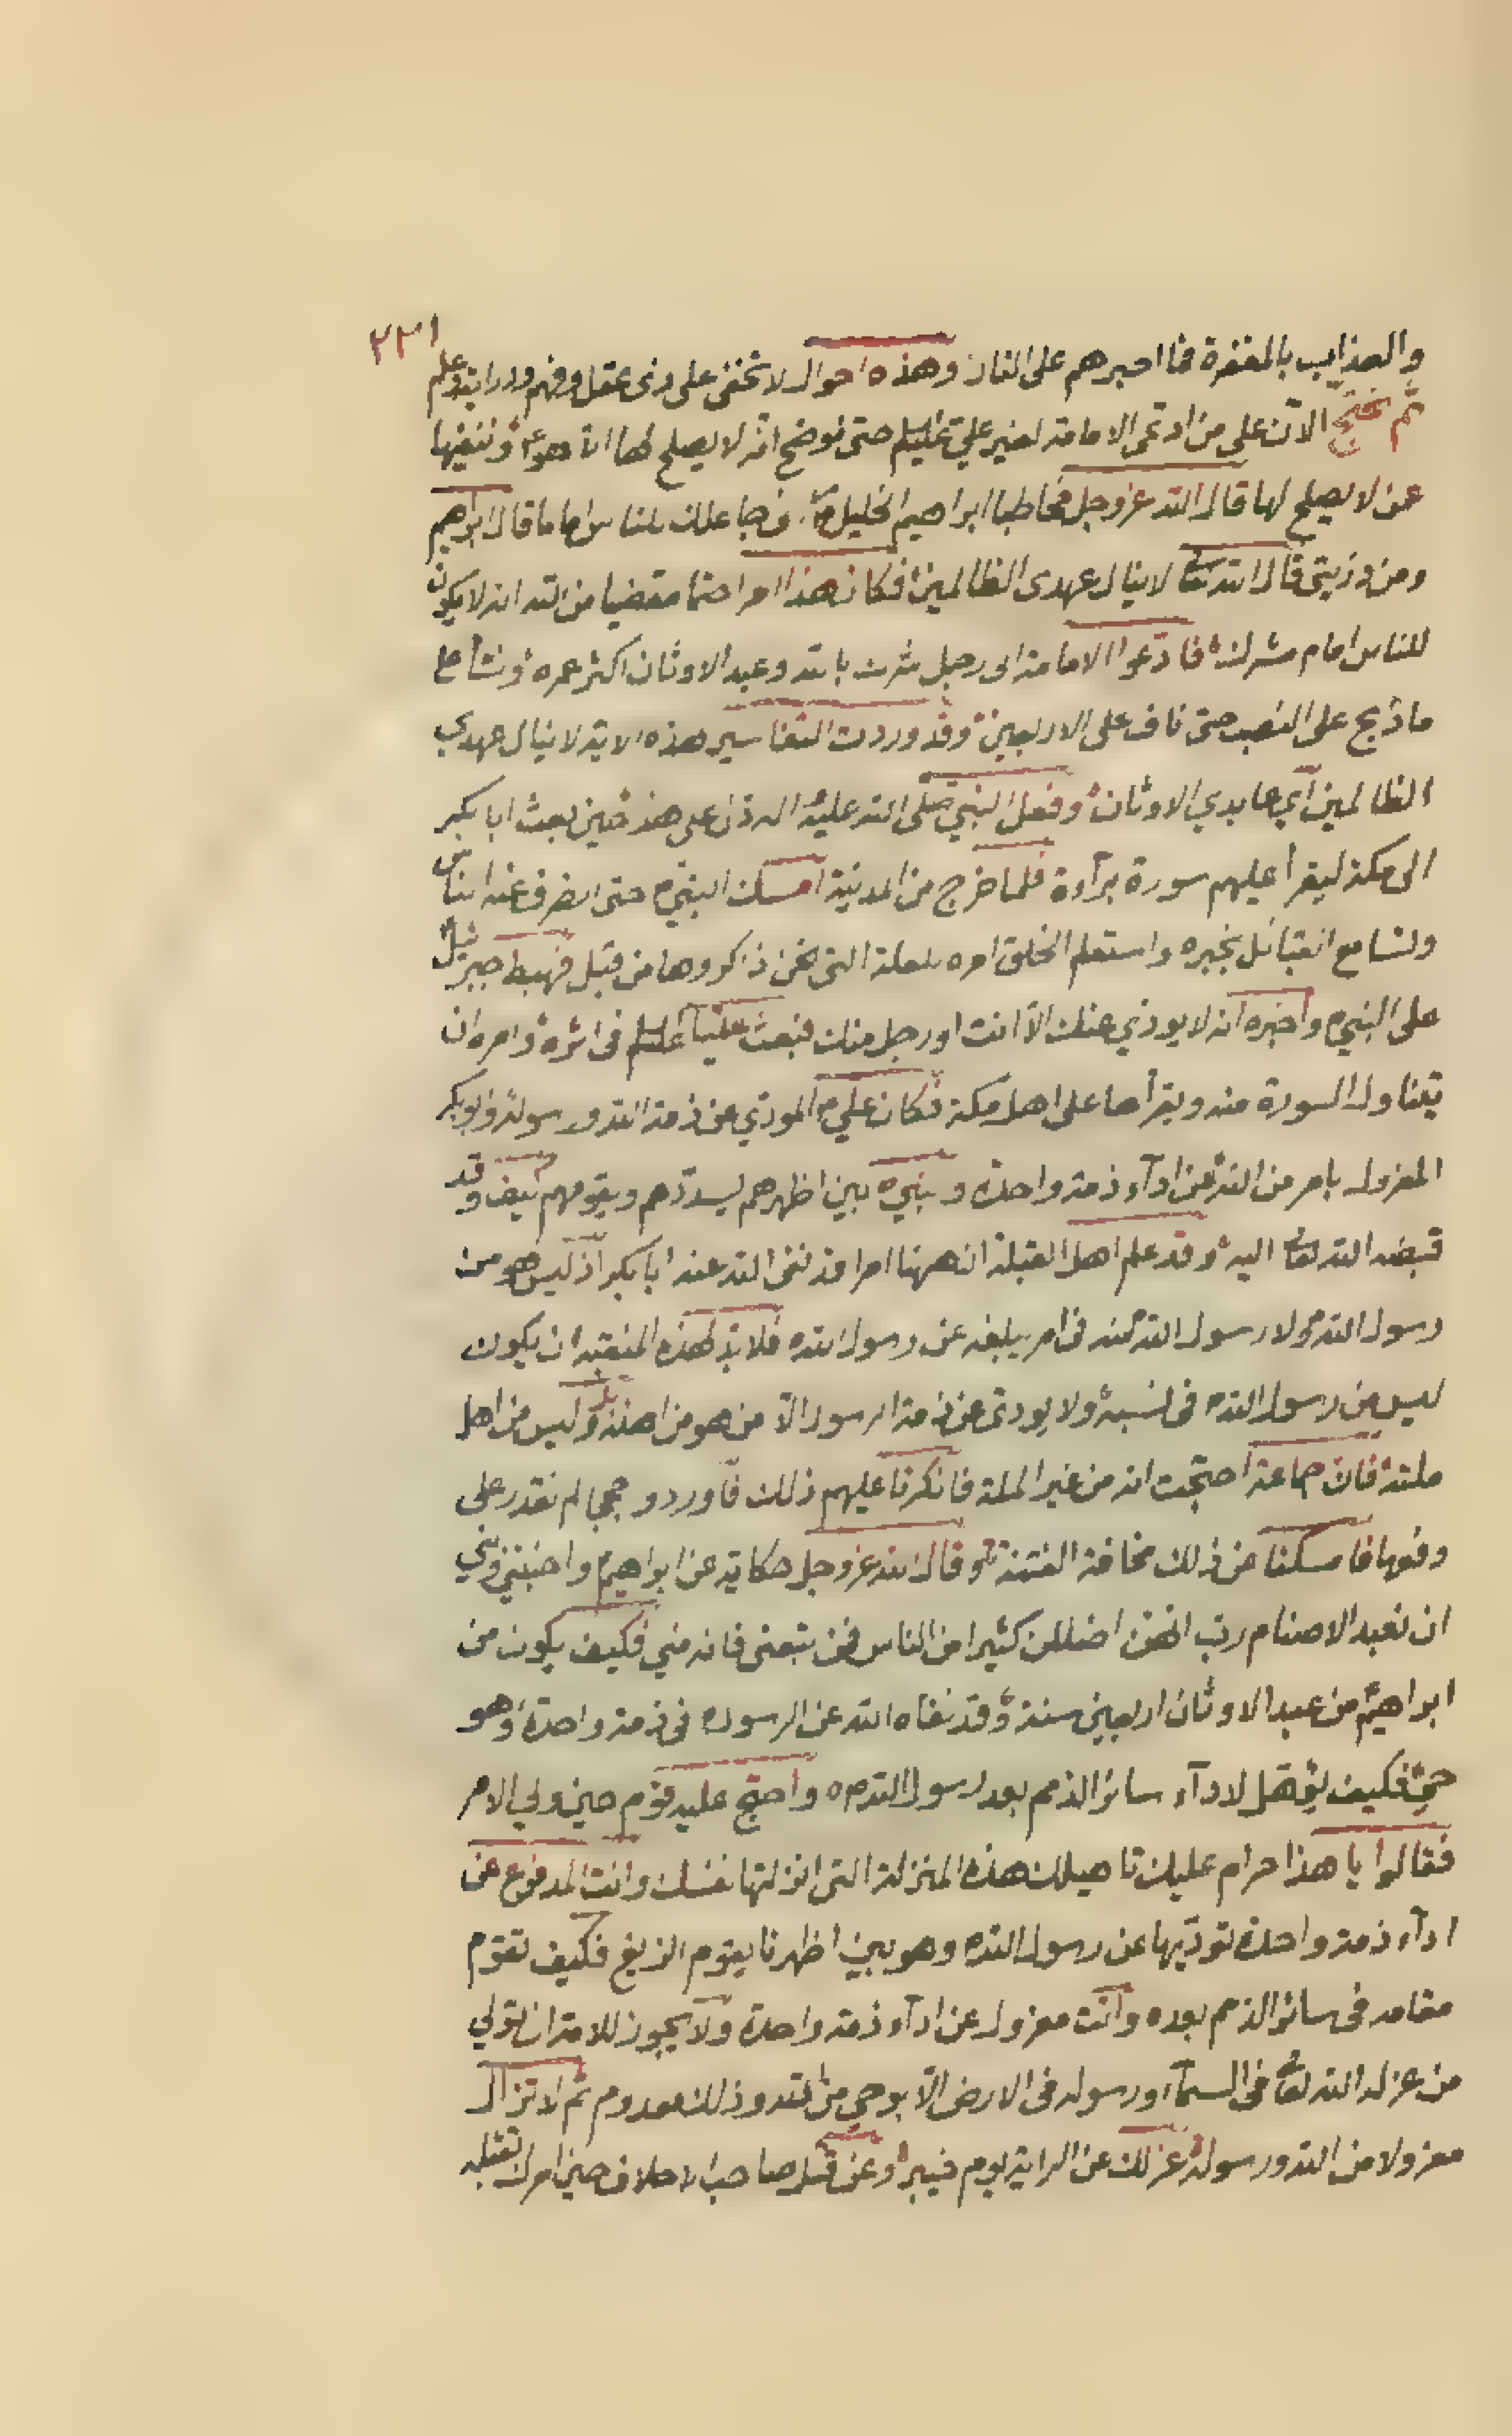 ٢٣١
والعذاب بالمغفرة فما اصبرهم على النار وهذه احوال لا تخفى على ذى عقل وفهم ودراية وعلم
ثم نحتج الآن على من ادعى الامامة لغير علي حتى نوضح انه لا يصلح لها الا هو وننفيها
عن لا يصلح لها قال الله عز وجل مخاطبا ابراهيم الخليل انى جاعلك للناس اماما قال ابراهيم
ومن ذريتى قال الله تعا لا ينال عهدى الظالمين فكان هذا امرا حتما مقضيا من الله ان لا يكون
للناس امام مشرك فادعوا الامامة الى رجل شرك بالله وعبد الاوثان اكثر عمره ونشأ على
ما ذبح على النصب حتى ناف على الاربعين وقد وردت التفاسير هذه الاية لا ينال عهدي
الظالمين آي عابدي الاوثان وفعل النبي صلى الله عليه اله دل على هذا حين بعث ابا بكر
الى مكة ليقرأ عليهم سورة برآءة فلما خرج من المدينة امسك النبي حتى انصرف عنه الناس
وتسامع القبائل بخبره واستعلم الخلق امره للعلة التى نحن ذاكروها من قبل فهبط جبرئيل
على النبي واخبره انه لا يودي عنك الا انت او رجل منك فبعث عليا فى اثره وامره ان
يتناول السورة منه ويقرأها على اهل مكة فكان علي المودي عن ذمة الله ورسوله وابوبكر
المعزول بامر من الله عن ادآء ذمة واحدة ونبيه بين اظهرهم يسددهم ويقومهم كيف وقد
قبضه الله تعا اليه وقد علم اهل القبلة ان ههنا امرا قد نفى الله عنه ابا بكر اذ ليس هو من
رسول الله ولا رسول الله منه فى امر يبلغه عن رسول الله فلا بد لهذه المنقبة ان يكون
ليس من رسول الله فى نسبه ولا يودى عن ذمة الرسول الا من هو من اهله وليس من اهل
ملته فان جماعة احتجت انه من غير الملة فانكرنا عليهم ذلك فآوردو حججا لم نقدر على
دفعها فامسكنا عن ذلك مخافة الفتنة وقال الله عز وجل حكاية عن ابراهيم واجنبني وبني
ان نعبد الاصنام رب انهن اضللن كثيرا من الناس فمن تبعنى فانه مني فكيف يكون من
ابراهيم من عبد الاوثان اربعين سنة وقد نفاه الله عن الرسول فى ذمة واحدة وهو
حي فكيف يؤهل لادآء سائر الذمم بعد رسول الله واحتج عليه قوم حين ولي الامر
فقالوا يا هذا حرام عليك تاهيلك هذه المنزلة التى انزلتها نفسك وانت المدفوع عن
ادآء ذمة واحدة تودّيها عن رسول الله وهو بين اظهرنا يقوم الزيغ فكيف تقوم
مقامه فى سائر الذمم بعده وانت معزول عن ادآء ذمة واحدة ولا يجوز للامة ان تولي
من عزله الله تعا فى السمآء ورسوله فى الارض الّا بوحي من الله وذلك معدوم ثم لا تزال
معزولا من الله ورسوله عزلك عن الراية يوم خيبر وعن قتل صاحب الاحلاف حين امرك بقتله